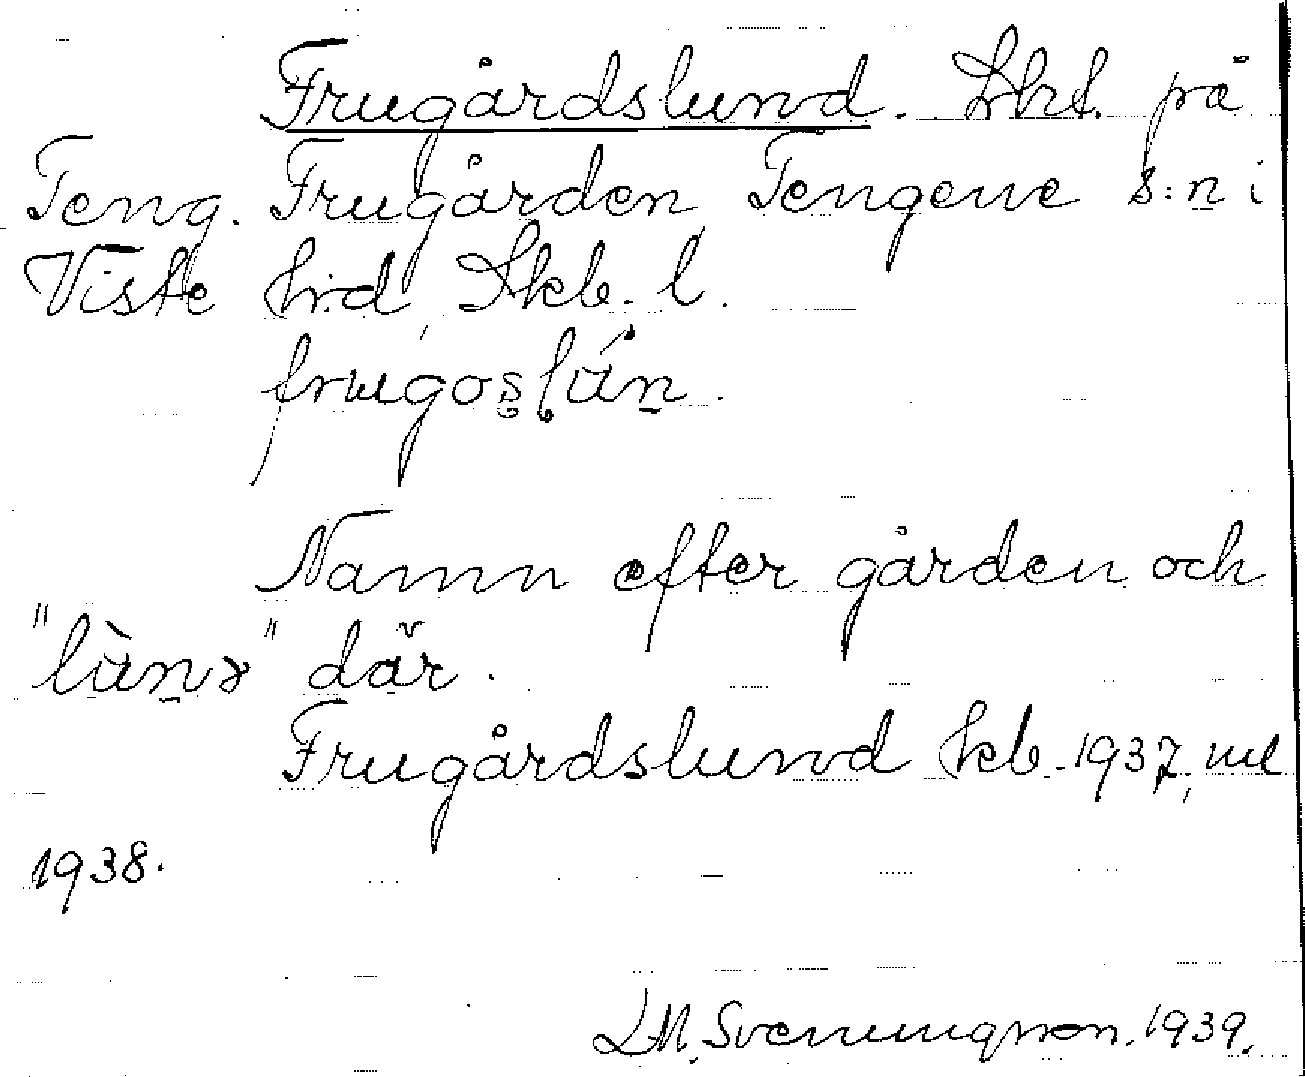 Frugårdslund. Lht. på
Teng. Frugården, Tengene s:n i
Viste hrd, Skb. l.
frugoslún.
Namn efter gården och
"lùnə" där.
Frugårdslund kb. 1937, ml
1938.
LM. Svenungsson. 1939.